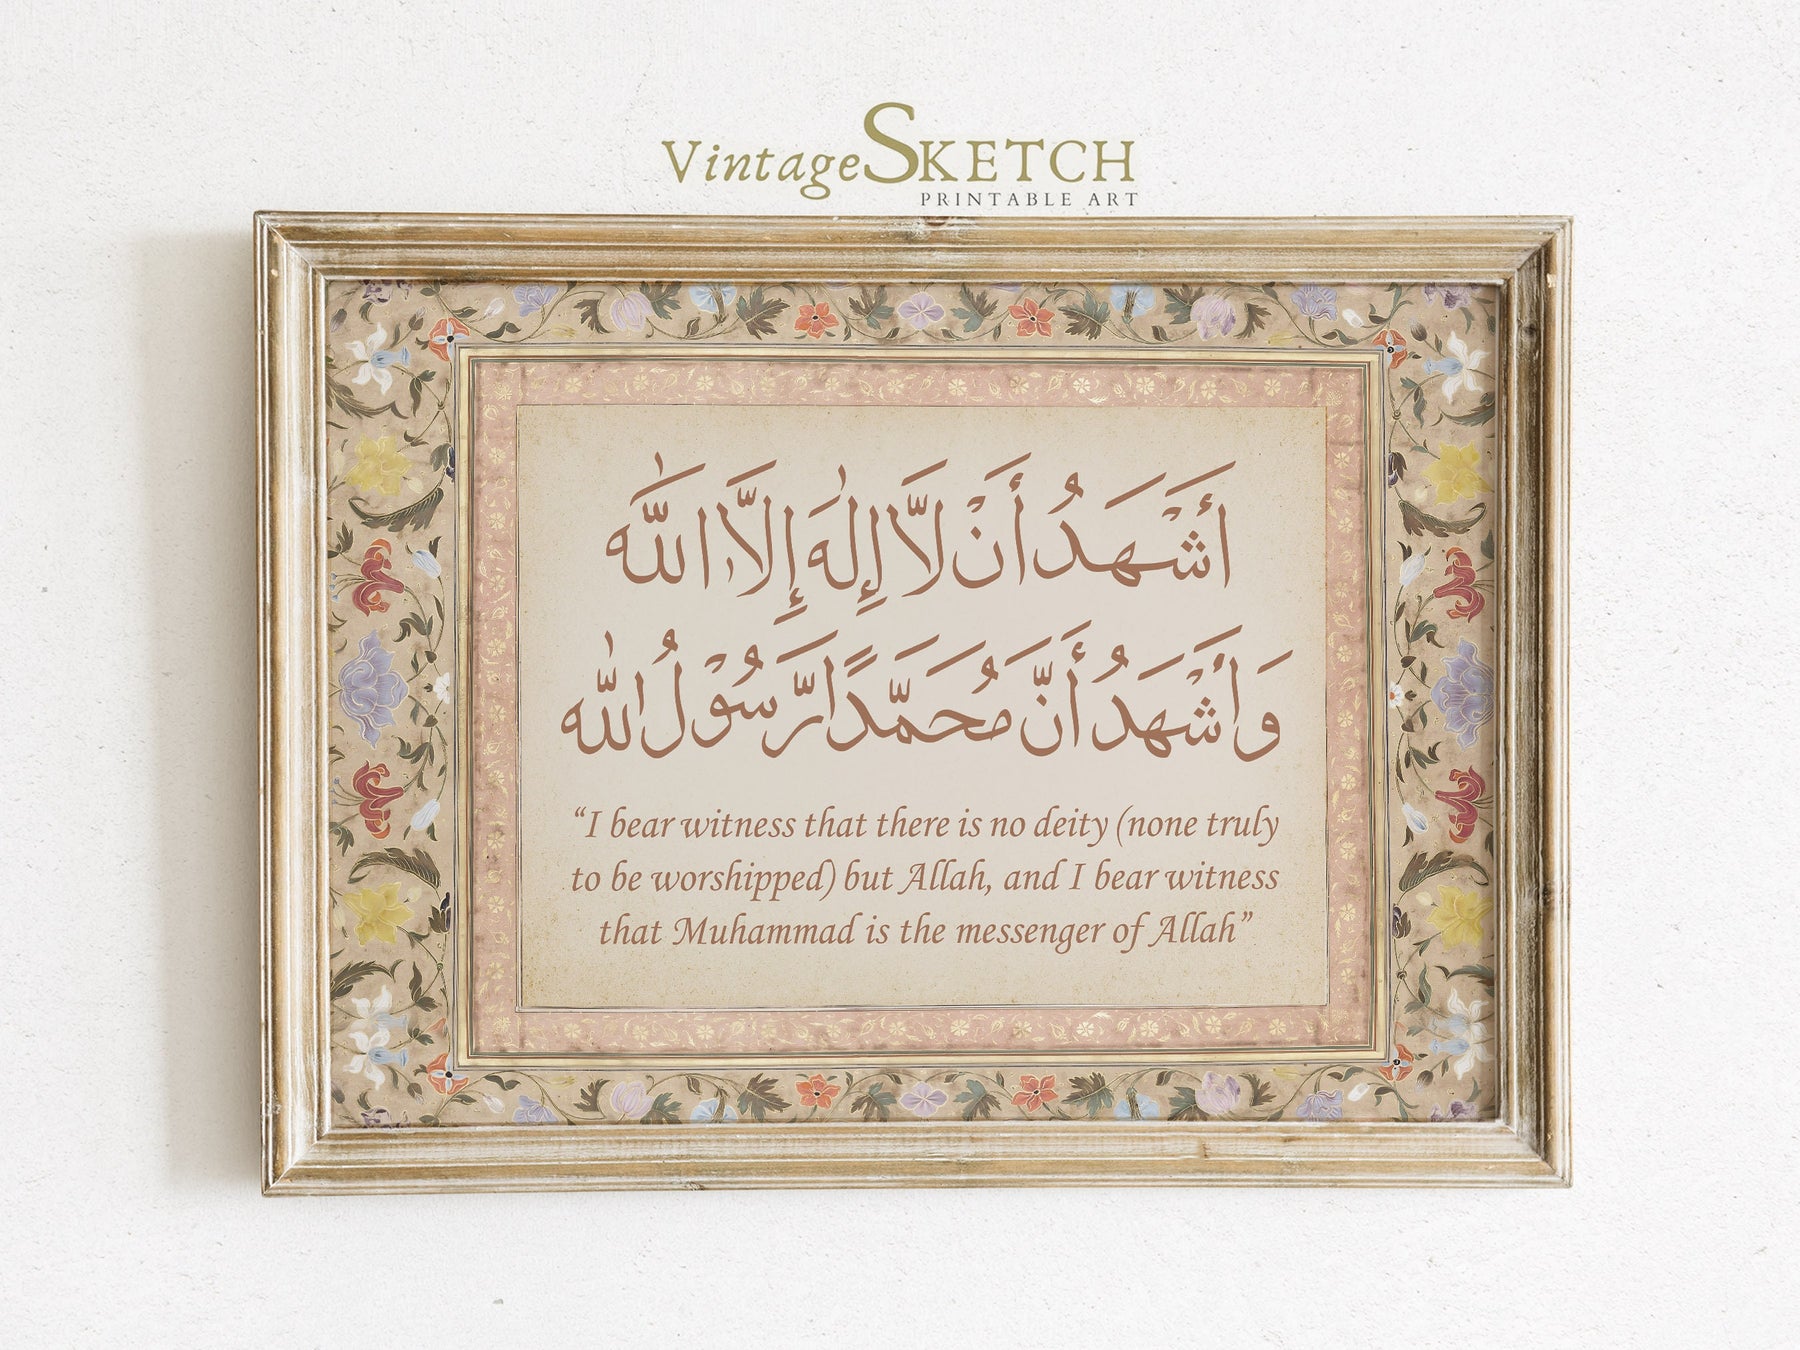 VintageSKETCH
PRINTABLE ART
أَشْهَدُ أَنْ لَّا إِلٰهَ إِلَّا اللّٰهُ
وَأَشْهَدُ أَنَّ مُحَمَّدًا رَّسُوْلُ اللّٰهِ
“I bear witness that there is no deity (none truly
to be worshipped) but Allah, and I bear witness
that Muhammad is the messenger of Allah”